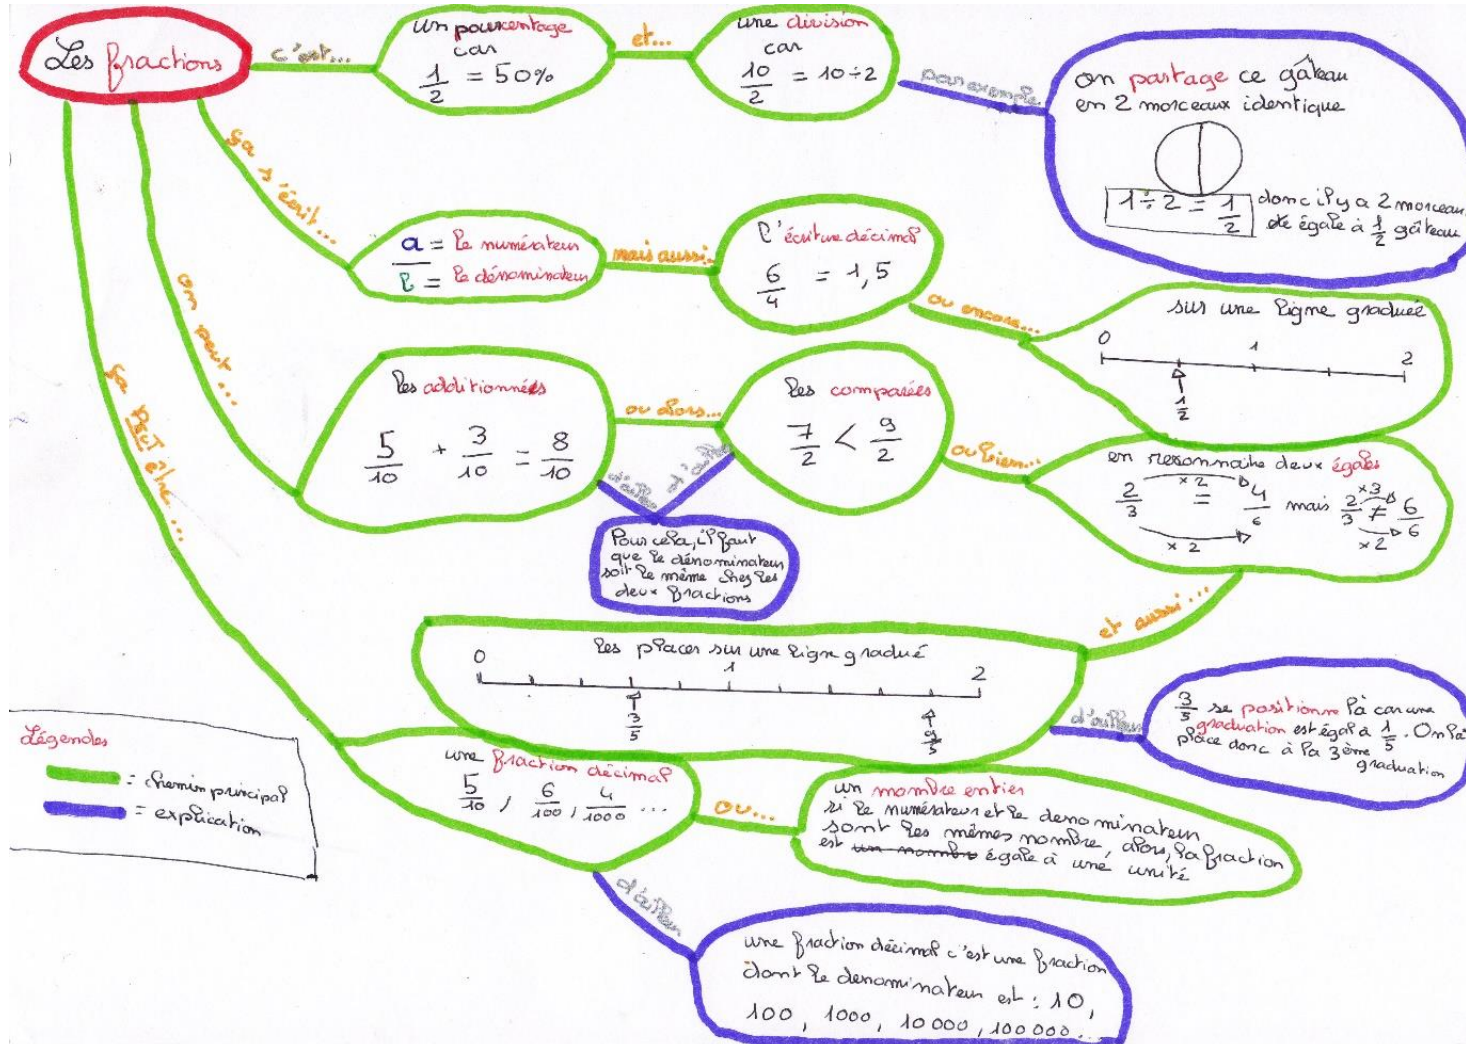 Les fractions
c'est...
un pourcentage
car
1/2 = 50%
et...
une division
car
10/2 = 10÷2
par exemple
on partage ce gâteau
en 2 morceaux identique
1÷2 = 1/2
donc il y a 2 morceau
de égale à 1/2 gâteau
ça s'écrit...
a = le numérateur
b = le dénominateur
mais aussi...
l'écriture décimal
6/4 = 1,5
ou encore...
sur une ligne graduée
0 1 2
1/2
on peut...
les additionnées
5/10 + 3/10 = 8/10
ou alors...
les comparées
7/2 < 9/2
d'ailleurs
d'ailleurs
Pour cela, il faut
que le dénominateur
soit le même chez les
deux fractions
ou bien...
en reconnaitre deux égales
×2
2/3 = 4/6
×2
mais
×3
2/3 ≠ 6/6
×2
et aussi...
les placer sur une ligne gradué
0 1 2
3/5
9/5
d'ailleurs
3/5 se positionne là car une
graduation est égal à 1/5. On la
place donc à la 3ème
graduation
ça PEUT être...
une fraction décimal
5/10, 6/100, 4/1000 ...
ou...
un nombre entier
si le numérateur et le denominateur
sont les mêmes nombre, alors, la fraction
est un nombre égale à une unité
d'ailleurs
une fraction décimal c'est une fraction
dont le denominateur est : 10,
100, 1000, 10 000, 100 000...
Légendes
= chemin principal
= explication